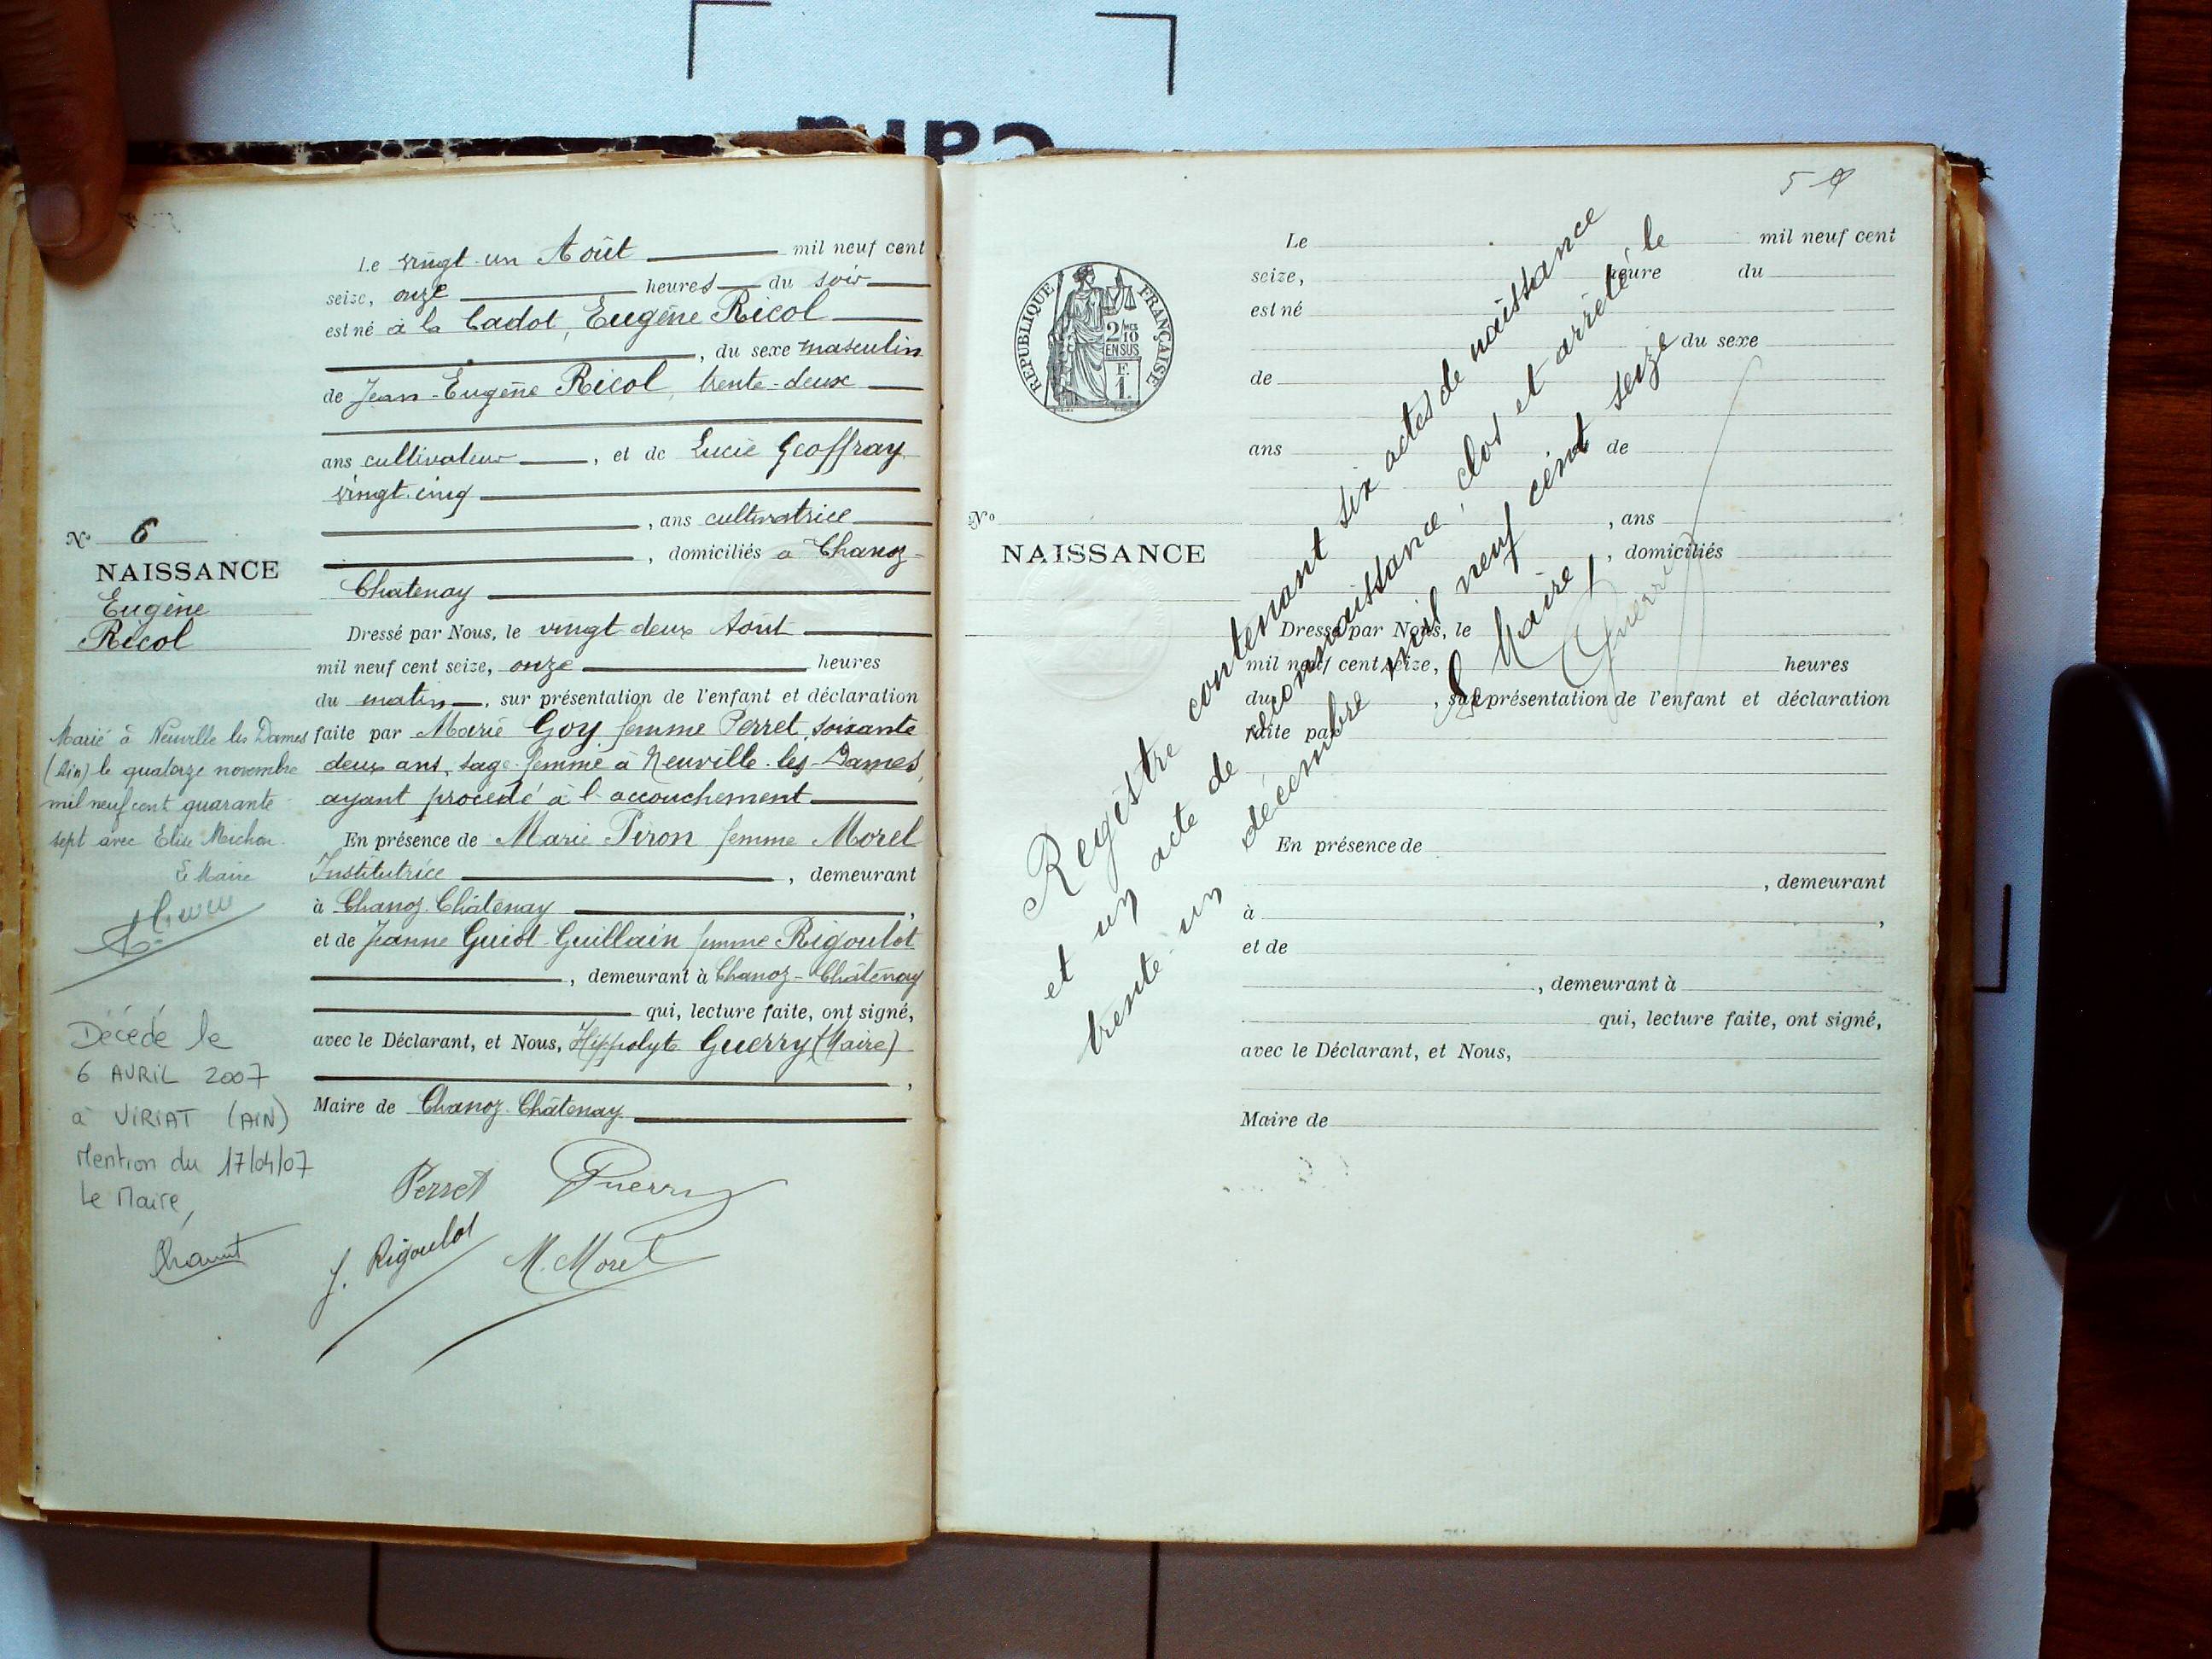 cara
Le vingt-un Août mil neuf cent
seize, onze heures du soir
est né à la Cadot, Eugène Ricol
, du sexe masculin
de Jean-Eugène Ricol, trente-deux
ans cultivateur , et de Lucie Geoffray
vingt-cinq
, ans cultivatrice
, domiciliés à Chanoz-
Châtenay
Dressé par Nous, le vingt deux Août
mil neuf cent seize, onze heures
du matin , sur présentation de l'enfant et déclaration
faite par Marie Goy femme Perret, soixante
deux ans, sage-femme à Neuville-les-Dames,
ayant procédé à l'accouchement
En présence de Marie Piron femme Morel
Institutrice , demeurant
à Chanoz-Châtenay ,
et de Jeanne Guiot-Guillain femme Rigoulot
, demeurant à Chanoz-Châtenay
qui, lecture faite, ont signé,
avec le Déclarant, et Nous, Hippolyte Guerry (Maire)
,
Maire de Chanoz-Châtenay
Perret Guerry
J. Rigoulot M. Morel
N° 6
NAISSANCE
Eugène
Ricol
Marié à Neuville les Dames
(Ain) le quatorze novembre
mil neuf cent quarante
sept avec Elise Michon.
Le Maire
Décédé le
6 AVRIL 2007
à VIRIAT (AIN)
Mention du 17/04/07
Le Maire,
5
RÉPUBLIQUE FRANÇAISE
2/10
EN SUS
F.
1.
N°
NAISSANCE
Le mil neuf cent
seize, heure du
est né
du sexe
de
ans de
, ans
, domiciliés
Dressé par Nous, le
mil neuf cent seize, heures
du , sur présentation de l'enfant et déclaration
faite par
En présence de
, demeurant
à ,
et de
, demeurant à
qui, lecture faite, ont signé,
avec le Déclarant, et Nous,
Maire de
Registre contenant six actes de naissance
et un acte de reconnaissance, clos et arrêté le
trente-un décembre mil neuf cent seize
Le Maire,
Guerry